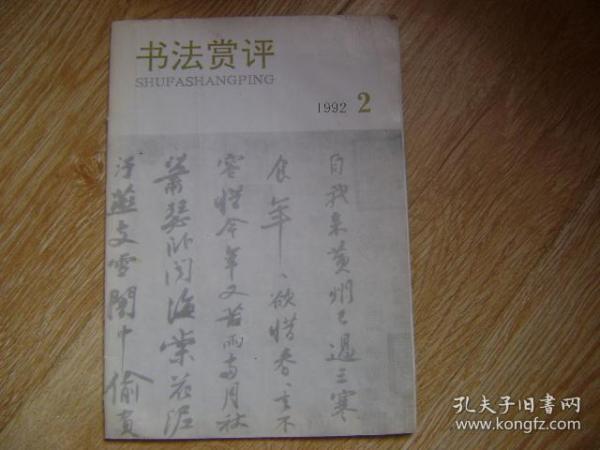 书法赏评
SHUFASHANGPING
1992 2
自我來黃州已過三寒
食年〻欲惜春〻去不
容惜今年又苦雨兩月秋
蕭瑟卧聞海棠花泥
汙燕支雪闇中偷負
孔夫子旧书网
www.kongfz.com